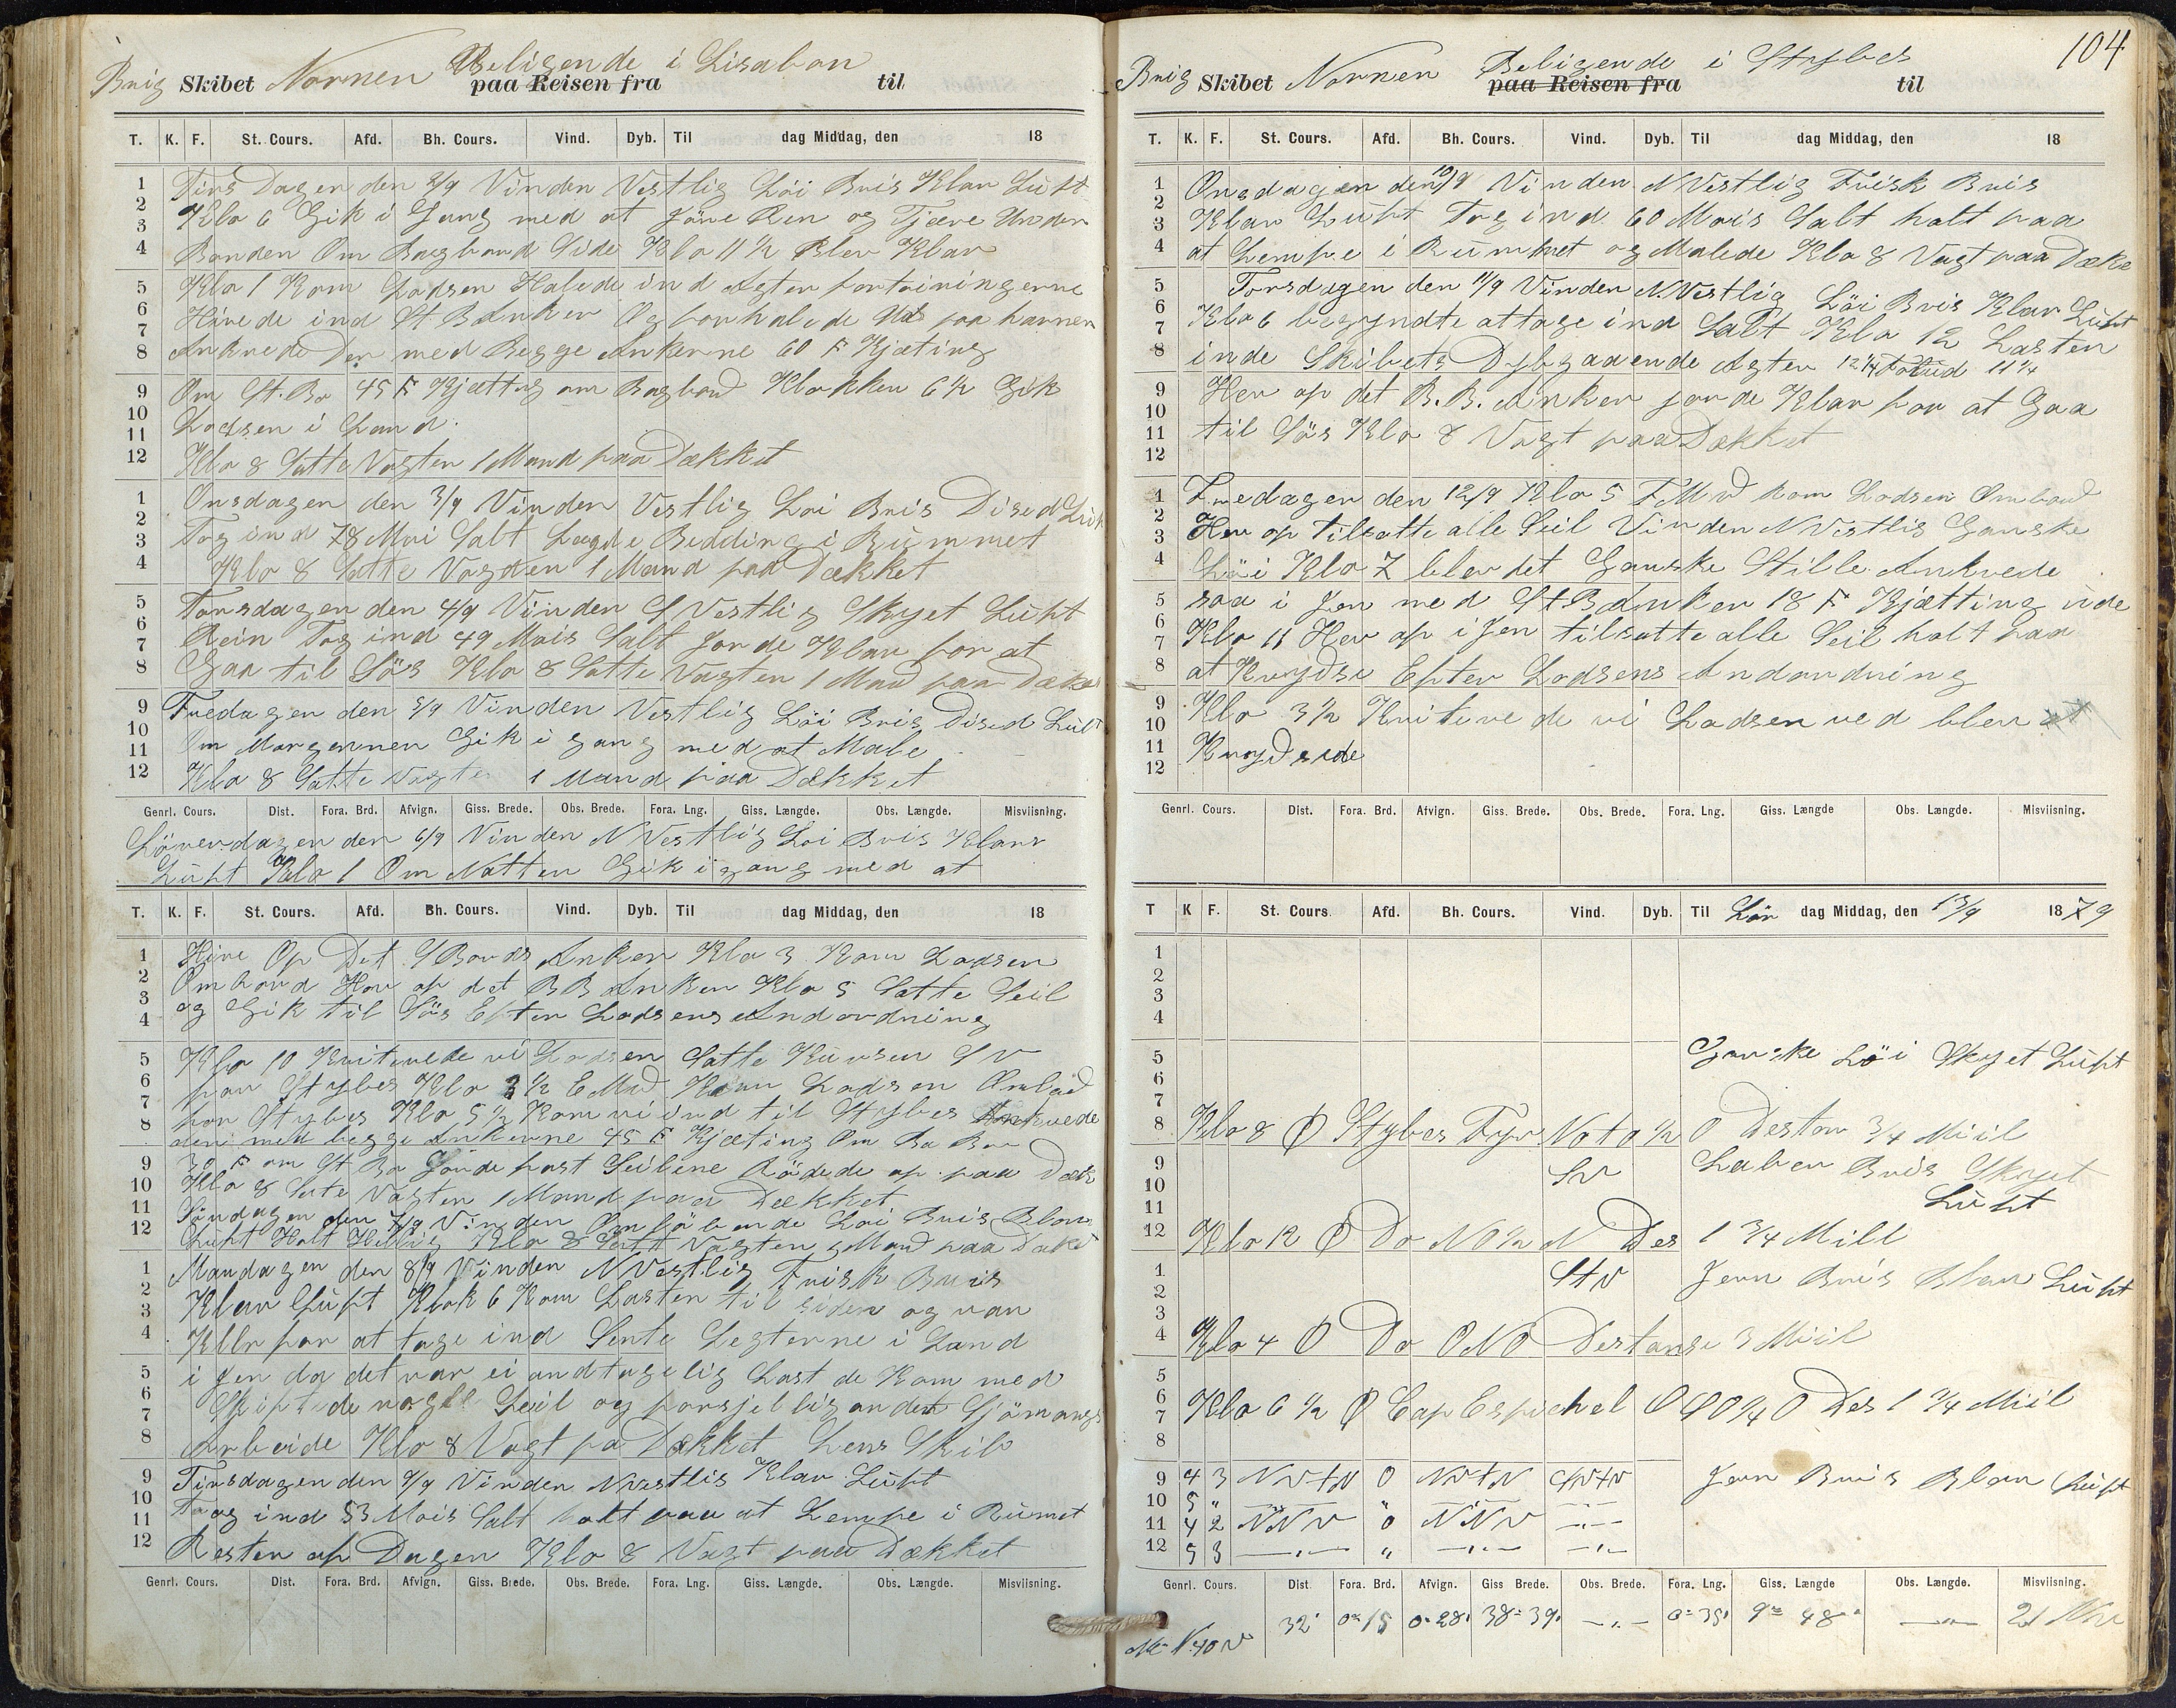 Brig Skibet Nornen Beligende i Lisabon
paa Reisen fra til
T. K. F. St. Cours. Afd. Bh. Cours. Vind. Dyb. Til dag Middag, den 18
1 Tirs Dagen den 2/9 Vinden Vestlig Löi Bris Klar Luft
2 Klo 6 Gik i Gang med at Jöre Ren og Tjære Under
3
4 Banden Om Bagbord Side Klo 11 1/2 Blev Klar
5 Klo 1 Kom Lodsen Halede ind Agter fortöiningerne
6 Hivede ind St B Anker Og forhalede Ud paa havnen
7
8 Ankrede Der med Begge Ankerne 60 F Kjæting
9 Om St. Bo 45 F Kjætting om Bagbord Klokken 6 1/2 Gik
10 Lodsen i Land.
11
12 Klo 8 Satte Vagten 1 Mand paa Dækket
1 Onsdagen den 3/9 Vinden Vestlig Löi Bris Diset Luft
2 Tog ind 78 Moi Salt Lagde Bedding i Rümmet
3
4 Klo 8 Satte Vagten 1 Mand paa Dækket
5 Torsdagen den 4/9 Vinden S Vestlig Skyet Luft
6 Rein Tog ind 49 Mois Salt Jorde Klar for at
7
8 Gaa til Sös Klo 8 Satte Vagten 1 Mand paa Dække
9 Fredagen den 5/9 Vinden Vestlig Löi Bris Diset Luft
10 Om Morgennen Gik i gang med at Male
11
12 Klo 8 Satte Vagten 1 Mand paa Dækket
Genrl. Cours. Dist. Fora. Brd. Afvign. Giss. Brede. Obs. Brede. Fora. Lng. Giss. Længde. Obs. Længde. Misviisning.
Löverdagen den 6/9 Vinden N Vestlig Löi Bris Klar
Luft Klo 1 Om Natten Gik i gang med at
T. K. F. St. Cours. Afd. Bh. Cours. Vind. Dyb. Til dag Middag, den 18
1 Hive Op Det S Bords Anker Klo 3 Kom Lodsen
2 Ombord Hev op det B B Anker Klo 5 Satte Seil
3
4 og Gik til Sös Efter Lodsens Andordning
5 Klo 10 Kviterede vi Lodsen Satte Kursen S V
6 for Stybes Klo 3 1/2 E Md Kom Lodsen Ombord
7 for Stybes Klo 5 1/2 Kom vi ind til Stybes Ankrede
8 den med begge Ankerne 45 F Kjæting Om Ba Bor
9 30 F om St Bo Jorde fast Seilene Rödede op paa Dæk
10 Klo 8 Satte Vagten 1 Mand paa Dækket
11 Söndagen den 7/9 Vinden Omlöbende Löi Bris Klar
12 Luft Holt Hellig Klo 8 Satt Vagten 1 Mand paa Dæk
1 Mandagen den 8/9 Vinden N Vestlig Frisk Bris
2 Klar Luft Klok 6 Kom Lasten til siden og var
3
4 Klar for at tage ind Sente Legterne i Land
5 i Jen da det var ei andtagelig Last de Kom med
6 Skiftede nogle Seil og forsjellig andet Sjömangs
7
8 Arbeide Klo 8 Vagt pa Dækket Lens Skib
9 Tirsdagen den 9/9 Vinden N Vestlig Klar Luft
10
11 Toog ind 53 Mois Salt holt paa at Lempe i Rümet
12 Resten af Dagen Klo 8 Vagt paa Dækket
Genrl. Cours. Dist. Fora. Brd. Afvign. Giss. Brede. Obs. Brede. Fora. Lng. Giss. Længde. Obs. Længde. Misviisning.
104
Brig Skibet Nornen Beligende i Stybes
paa Reisen fra til
T. K. F. St. Cours. Afd. Bh. Cours. Vind. Dyb. Til dag Middag, den 18
1 Onsdagen den 10/9 Vinden N Vestlig Frisk Bris
2
3 Klar Luft Tog ind 60 Mois Salt holt paa
4 at Lempe i Rümmet og Malede Klo 8 Vagt paa Dæke
5 Torsdagen den 11/9 Vinden N. Vestlig Löi Bris Klar Luft
6
7 Klo 6 begyndte at tage ind Salt Klo 12 Lasten
8 inde Skibets Dybgaaende Agter 12 1/4 Forud 11 1/4
9 Hev op det B. B. Anker jorde Klar for at Gaa
10
11 til Sös Klo 8 Vagt paa Dækket
12
1 Fredagen den 12/9 Klo 5 F Md kom Lodsen Ombord
2
3 Hev op tilsatte alle Seil Vinden N Vestlig Ganske
4 Löi Klo 7 blev det Ganske Stille Ankrede
5 saa i Jen med St B Anker 18 F Kjætting üde
6
7 Klo 11 Hev op i Jen tilsatte alle Seil holt paa
8 at Krydse Efter Lodsens Andordning
9
10 Klo 3 1/2 Kviterede vi Lodsen ved blev at
11 Krydsede
12
Genrl. Cours. Dist. Fora. Brd. Afvign. Giss. Brede. Obs. Brede. Fora. Lng. Giss. Længde Obs. Længde. Misviisning.
T K F. St. Cours. Afd. Bh. Cours. Vind. Dyb. Til Lör dag Middag, den 13/9 1879
1
2
3
4
5 Ganske Löi Skyet Luft
6
7
8 Klo 8 Stybes Fyr N o t o 1/2 O Destan 3/4 Miil
9 SW Laber Bris Skyet
10
11 Luft
12 Klo 12 Do N O 1/2 N Des 1 3/4 Mill
1 Jevn Bris Klar Luft
2
3
4 Klo 4 Do ONO Destanse 3 Miil
5
6
7 Klo 6 1/2 Cap Espichel Des 1 3/4 Miil
8
9 4 3 NVtN 0 NVtN Jevn Bris Klar Luft
10 5 "
11 4 2 NNV 0 NNV
12 5 3 "
Genrl. Cours. Dist. Fora. Brd. Afvign. Giss Brede. Obs. Brede. Fora. Lng. Giss. Længde Obs. Længde. Misviisning.
N. 40 V 32' 0° 15 0° 28' 38° 39' 0° 35' 9° 48' 21